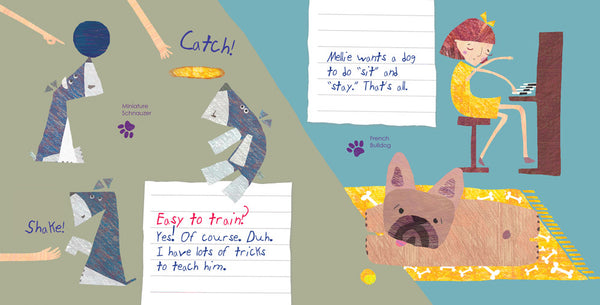 Catch!
Miniature
Schnauzer
Shake!
Easy to train?
Yes! Of course. Duh.
I have lots of tricks
to teach him.
Mellie wants a dog
to do "sit" and
"stay." That's all.
French
Bulldog